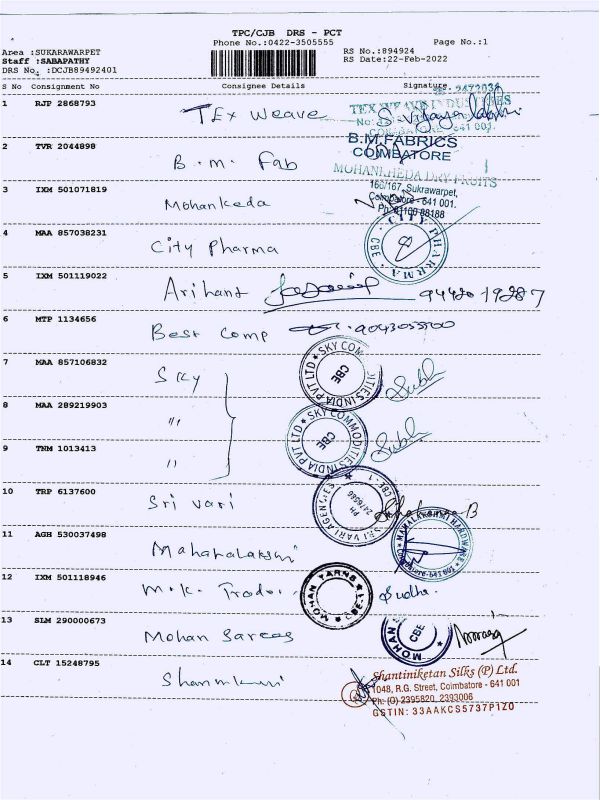 TPC/CJB DRS - PCT
Phone No.:0422-3505555 Page No.:1
Area :SUKARAWARPET RS No.:894924
Staff :SABAPATHY RS Date:22-Feb-2022
DRS No. :DCJB89492401
S No Consignment No Consignee Details Signature
1 RJP 2868793 TEx Weave
TEX WEAVE INDUSTRIES
COIMBATORE - 641 001.
2 TVR 2044898 B.M. Fab
B.M.FABRICS
COIMBATORE
3 IXM 501071819 Mohankeda
MOHANLHEDA DRY FRUITS
160/167, Sukrawarpet,
Coimbatore - 641 001.
4 MAA 857038231 City Pharma
CITY PHARMA
CBE
5 IXM 501119022 Arihant 94420 19287
6 MTP 1134656 Best Comp
7 MAA 857106832 Sky
SKY COMMODITIES INDIA PVT LTD
CBE
Subh
8 MAA 289219903 "
SKY COMMODITIES INDIA PVT LTD
CBE
Subh
9 TNM 1013413 "
10 TRP 6137600 Sri Vari
SRI VARI AGENCIES
CBE-1
11 AGH 530037498 Mahahalakshmi
MAHALAKSHMI HARDWARE
12 IXM 501118946 M.K. Trador
MOHAN YARNS
CBE-1
Sudha
13 SLM 290000673 Mohan Sarees
MOHAN
CBE
14 CLT 15248795
Shantiniketan Silks (P) Ltd.
1048, R.G. Street, Coimbatore - 641 001
Ph: (O) 2395820, 2393006
GSTIN: 33AAKCS5737P1Z0